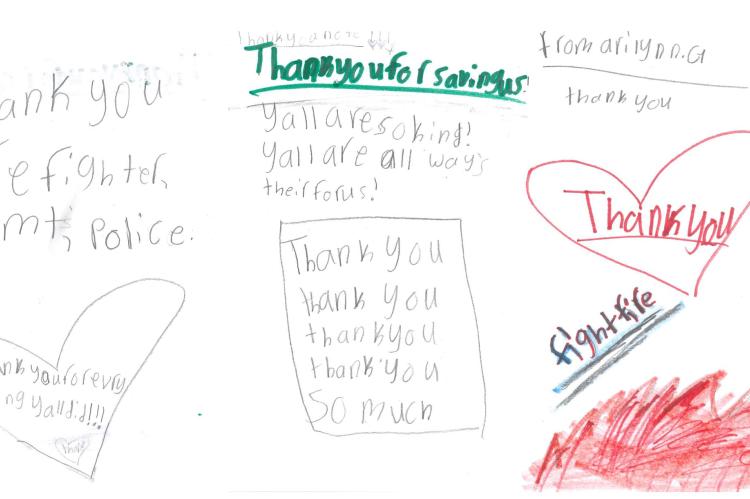 ank you
e fighter,
mt, police.
ank you for evry
ng yall did!!!
Thank you note
Thank you for saving us!
Yall are so king!
Yall are all way's
their for us!
Thank you
thank you
thank you
thank you
So much
from arilynn.G
thank you
Thank you
fight fire